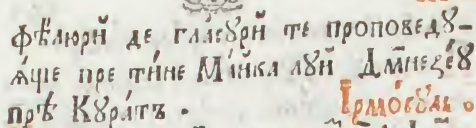 фѣлюрй де гла́сꙋрй те проповедꙋ-
ѧ́ще пре ти́не Ма́йка лꙋй Дм҃незе́ꙋ
прѣ Кꙋра́тъ. Їрмо́сꙋль.